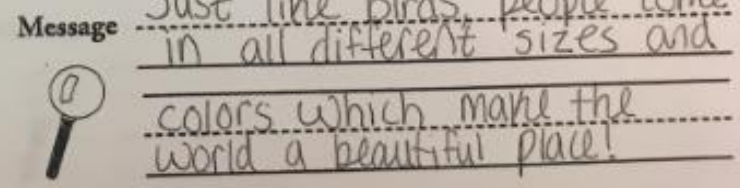 Message
Just like birds, people come
in all different sizes and
colors which make the
world a beautiful place!